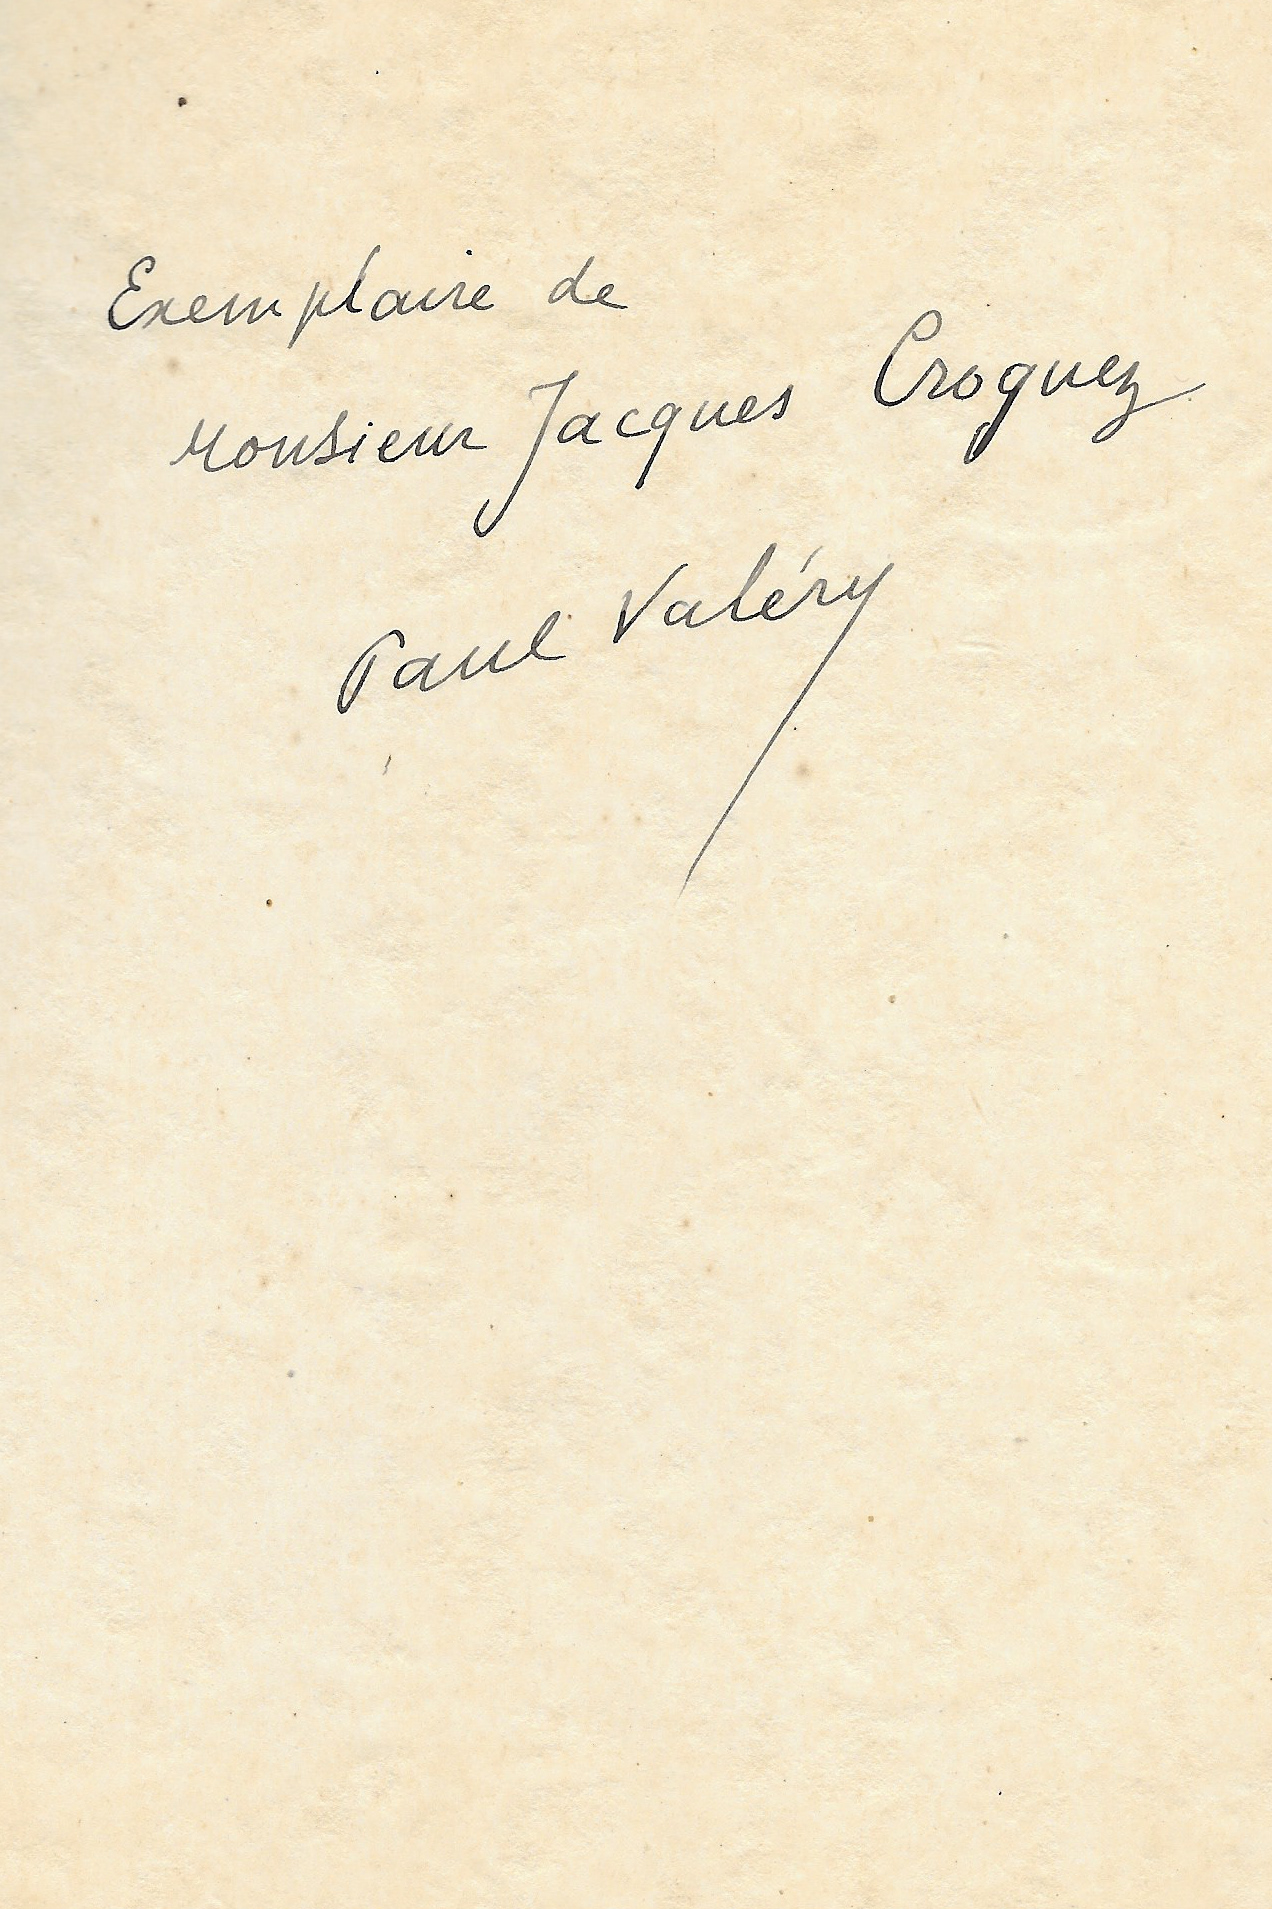 Exemplaire de
Monsieur Jacques Croquez
Paul Valéry